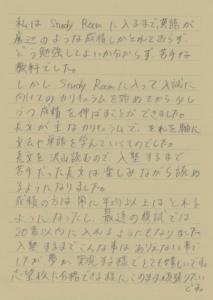 私は Study Room に入るまで英語が
最近のような成績しかとれておらず
どう勉強したらよいか分からず、苦手な
教科でした。
しかし Study Room に入って入試に
向けてのカリキュラムを始めてから少し
ずつ成績を伸ばすことができました。
長文が主なカリキュラムで、それを軸に
文法や単語を学んでいくものでした。
長文を沢山読むので、入塾するまで
苦手だった長文は楽しみながら読め
るようになりました。
成績の方は常に平均以上はとれる
ようになったし、最近の模試では
20番以内に入れるようにもなりました。
入塾するまでこんな事はありえない事で
したが夢が実現する様でとても嬉しいです。
志望校に合格できる様に、このまま頑張りたい
です。